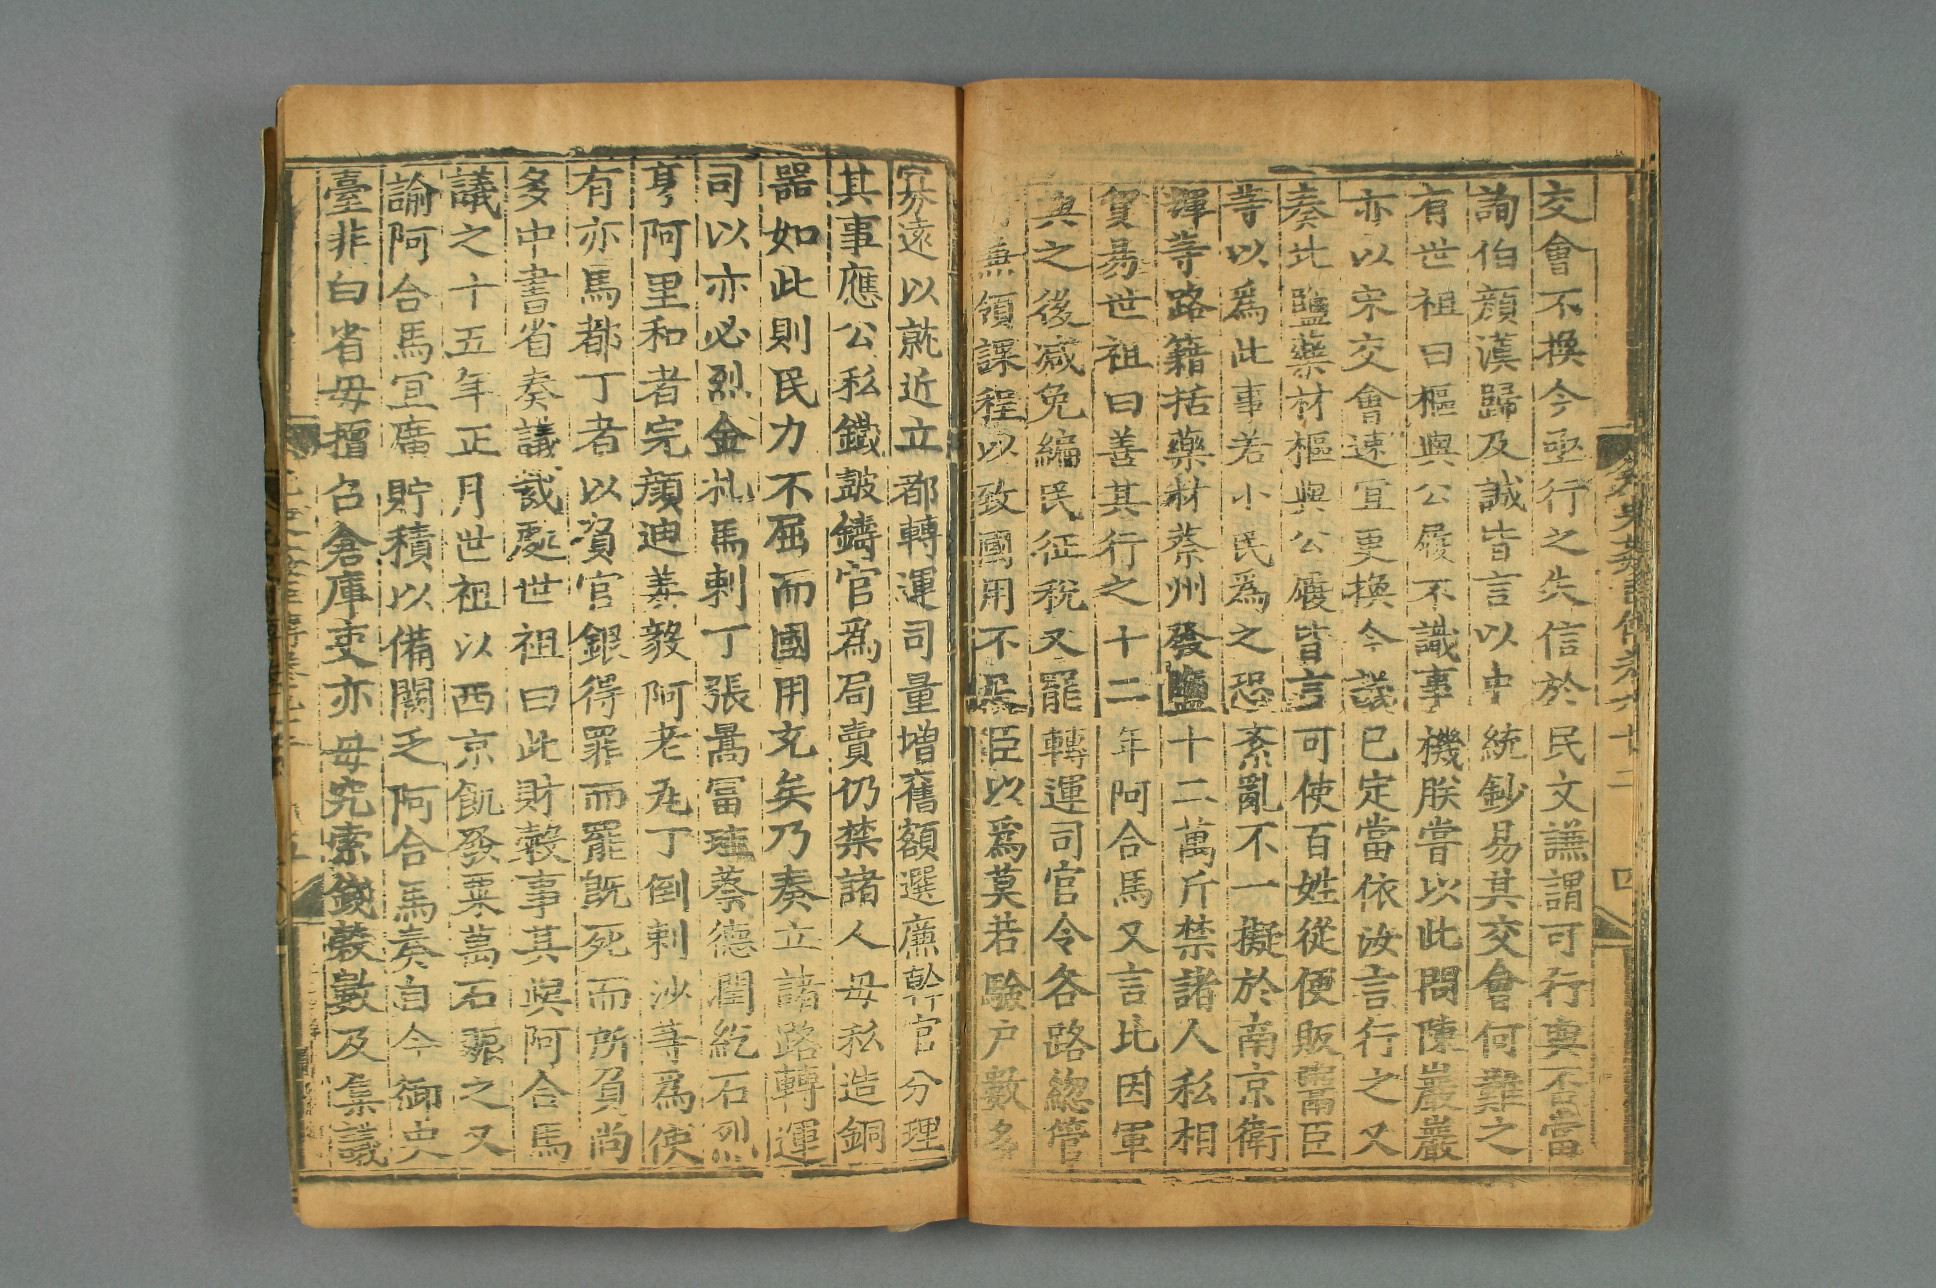 交會不換今亟行之失信於民文謙謂可行與否當
詢伯顏漢歸及誠皆言以中統鈔易其交會何難之
有世祖曰樞與公履不識事機朕嘗以此問陳巖巖
亦以宋交會速宜更換今議已定當依汝言行之又
奏北鹽藥材樞與公履皆言可使百姓從便販鬻臣
等以爲此事若小民爲之恐紊亂不一擬於南京衛
輝等路籍括藥材蔡州發鹽十二萬斤禁諸人私相
貿易世祖曰善其行之十二年阿合馬又言比因軍
興之後減免編民征税又罷轉運司官令各路緫管
兼領課程以致國用不足臣以爲莫若驗户數多
寡遠以就近立都轉運司量增舊額選廉幹官分理
其事應公私鐵鼓鑄官爲局賣仍禁諸人毋私造銅
器如此則民力不屈而國用充矣乃奏立諸路轉運
司以亦必烈金札馬剌丁張暠冨珪蔡德潤紇石烈
亨阿里和者完顔迪姜毅阿老瓦丁倒剌沙等爲使
有亦馬都丁者以負官銀得罪而罷既死而所負尚
多中書省奏議裁處世祖曰此財穀事其與阿合馬
議之十五年正月世祖以西京飢發粟萬石賑之又
諭阿合馬宜廣貯積以備闕乏阿合馬奏自今御史
臺非白省毋擅召倉庫吏亦毋究索錢穀數及集議